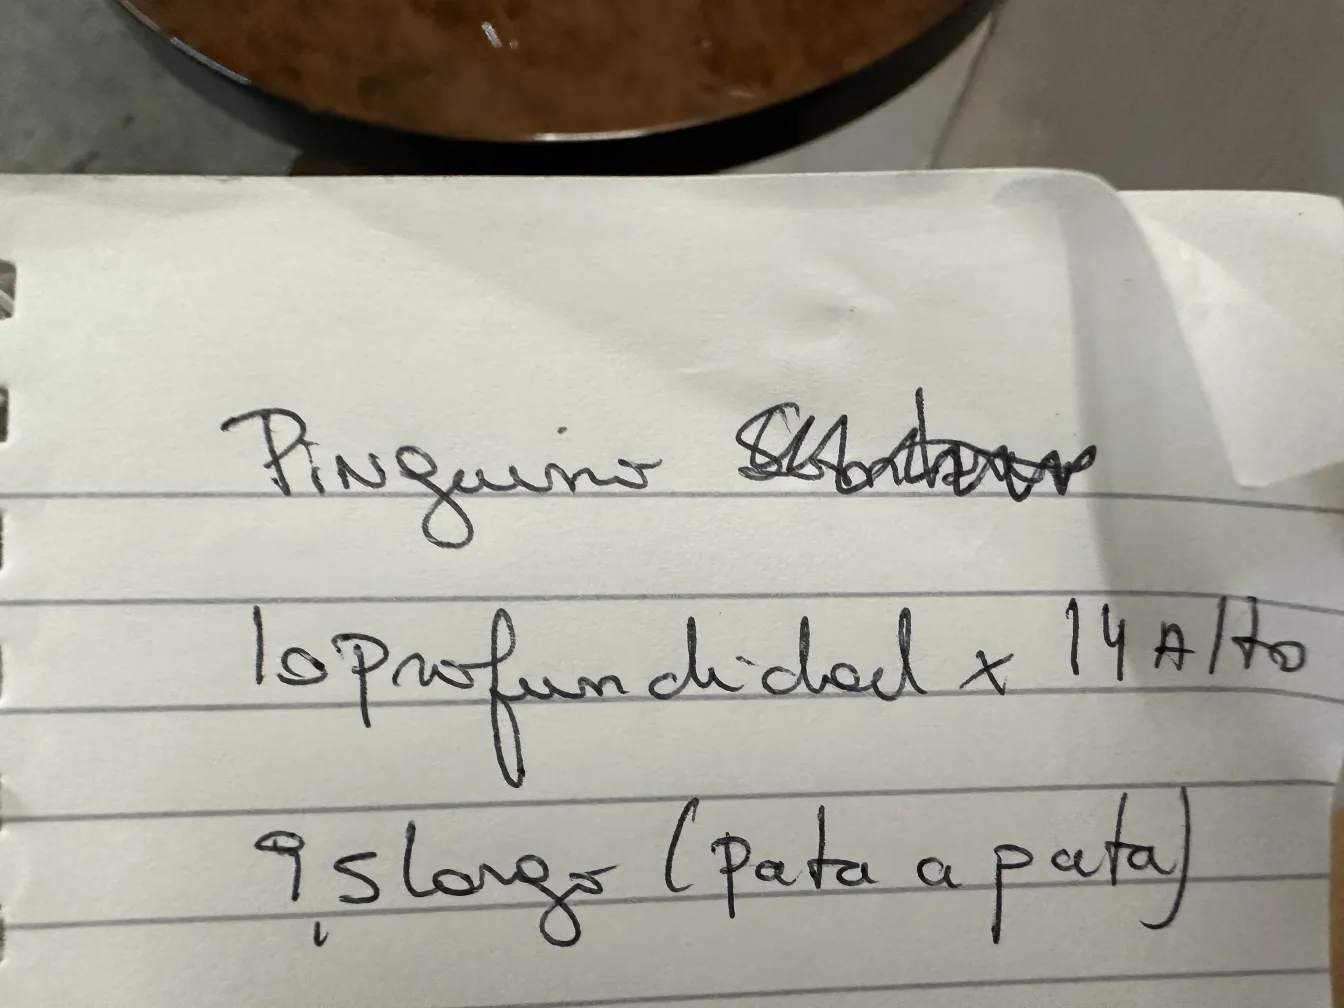 Pinguino
10 profundidad x 14 Alto
9,5 largo (pata a pata)